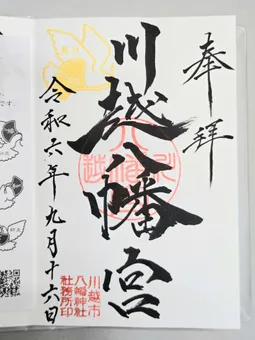 奉拝
川越八幡宮
令和六年九月十六日
川越市
八幡神社
社務所印
です。